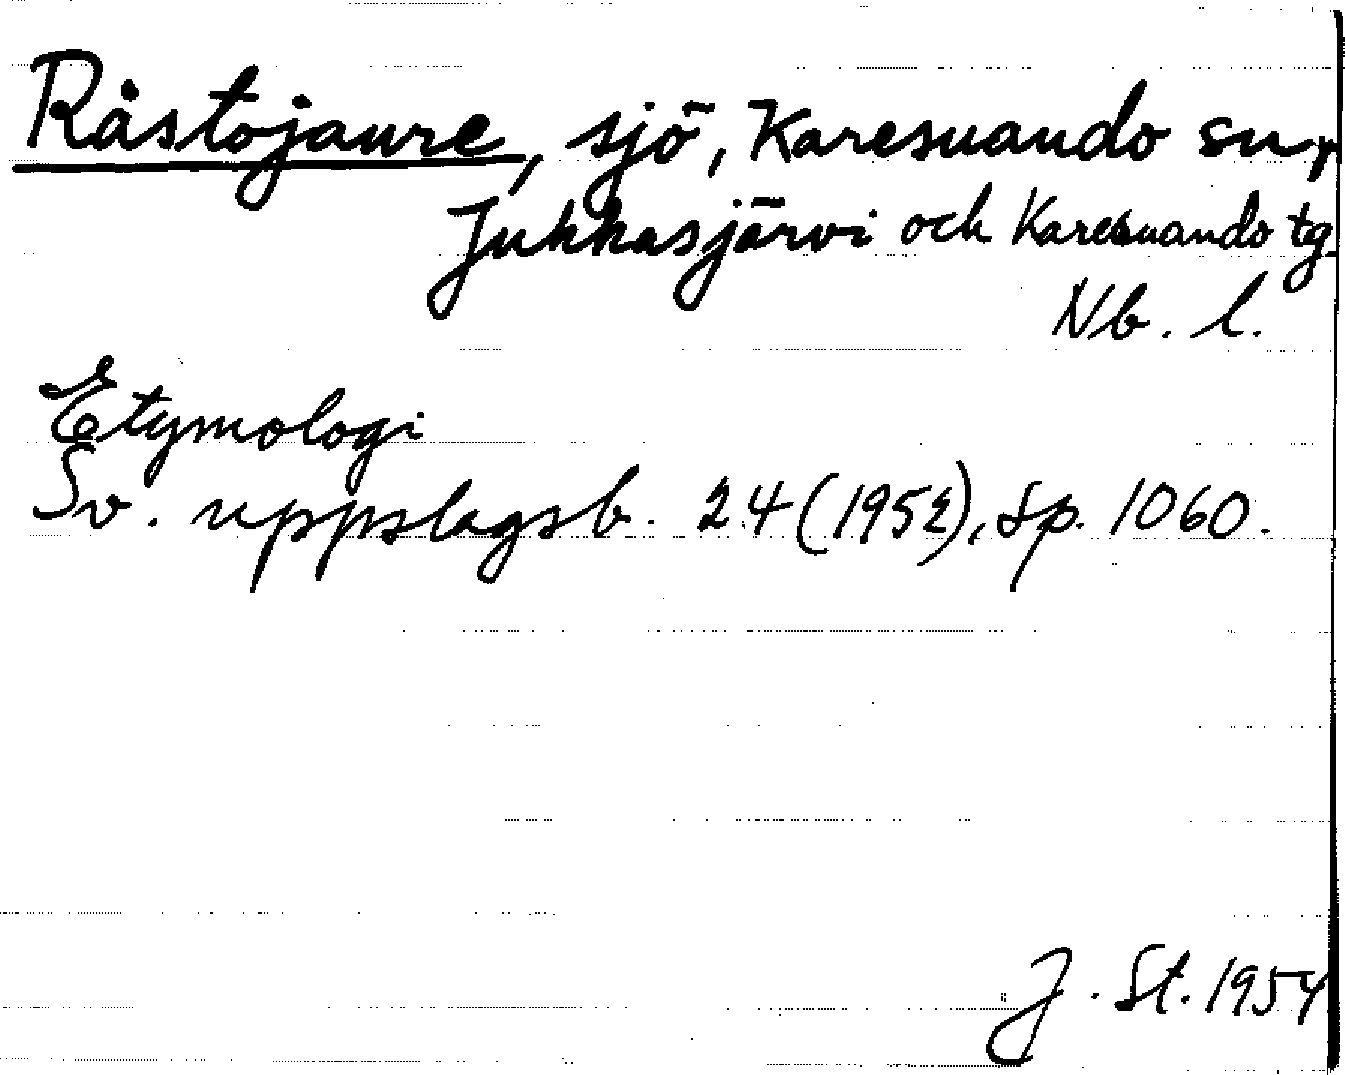 Råstojaure, sjö, Karesuando sn,
Jukkasjärvi och Karesuando tg
Nb. l.
Etymologi
Sv. uppslagsb. 24 (1952), sp. 1060.
J. St. 1954